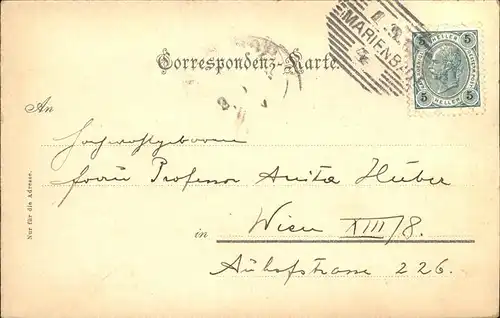 MARIENBA
5 HELLER 5
5 HELLER 5
Correspondenz-Karte.
An
Hochwohlgeboren
Frau Professor Anita Huber
in Wien XIII/8.
Auhofstrasse 226.
Nur für die Adresse.